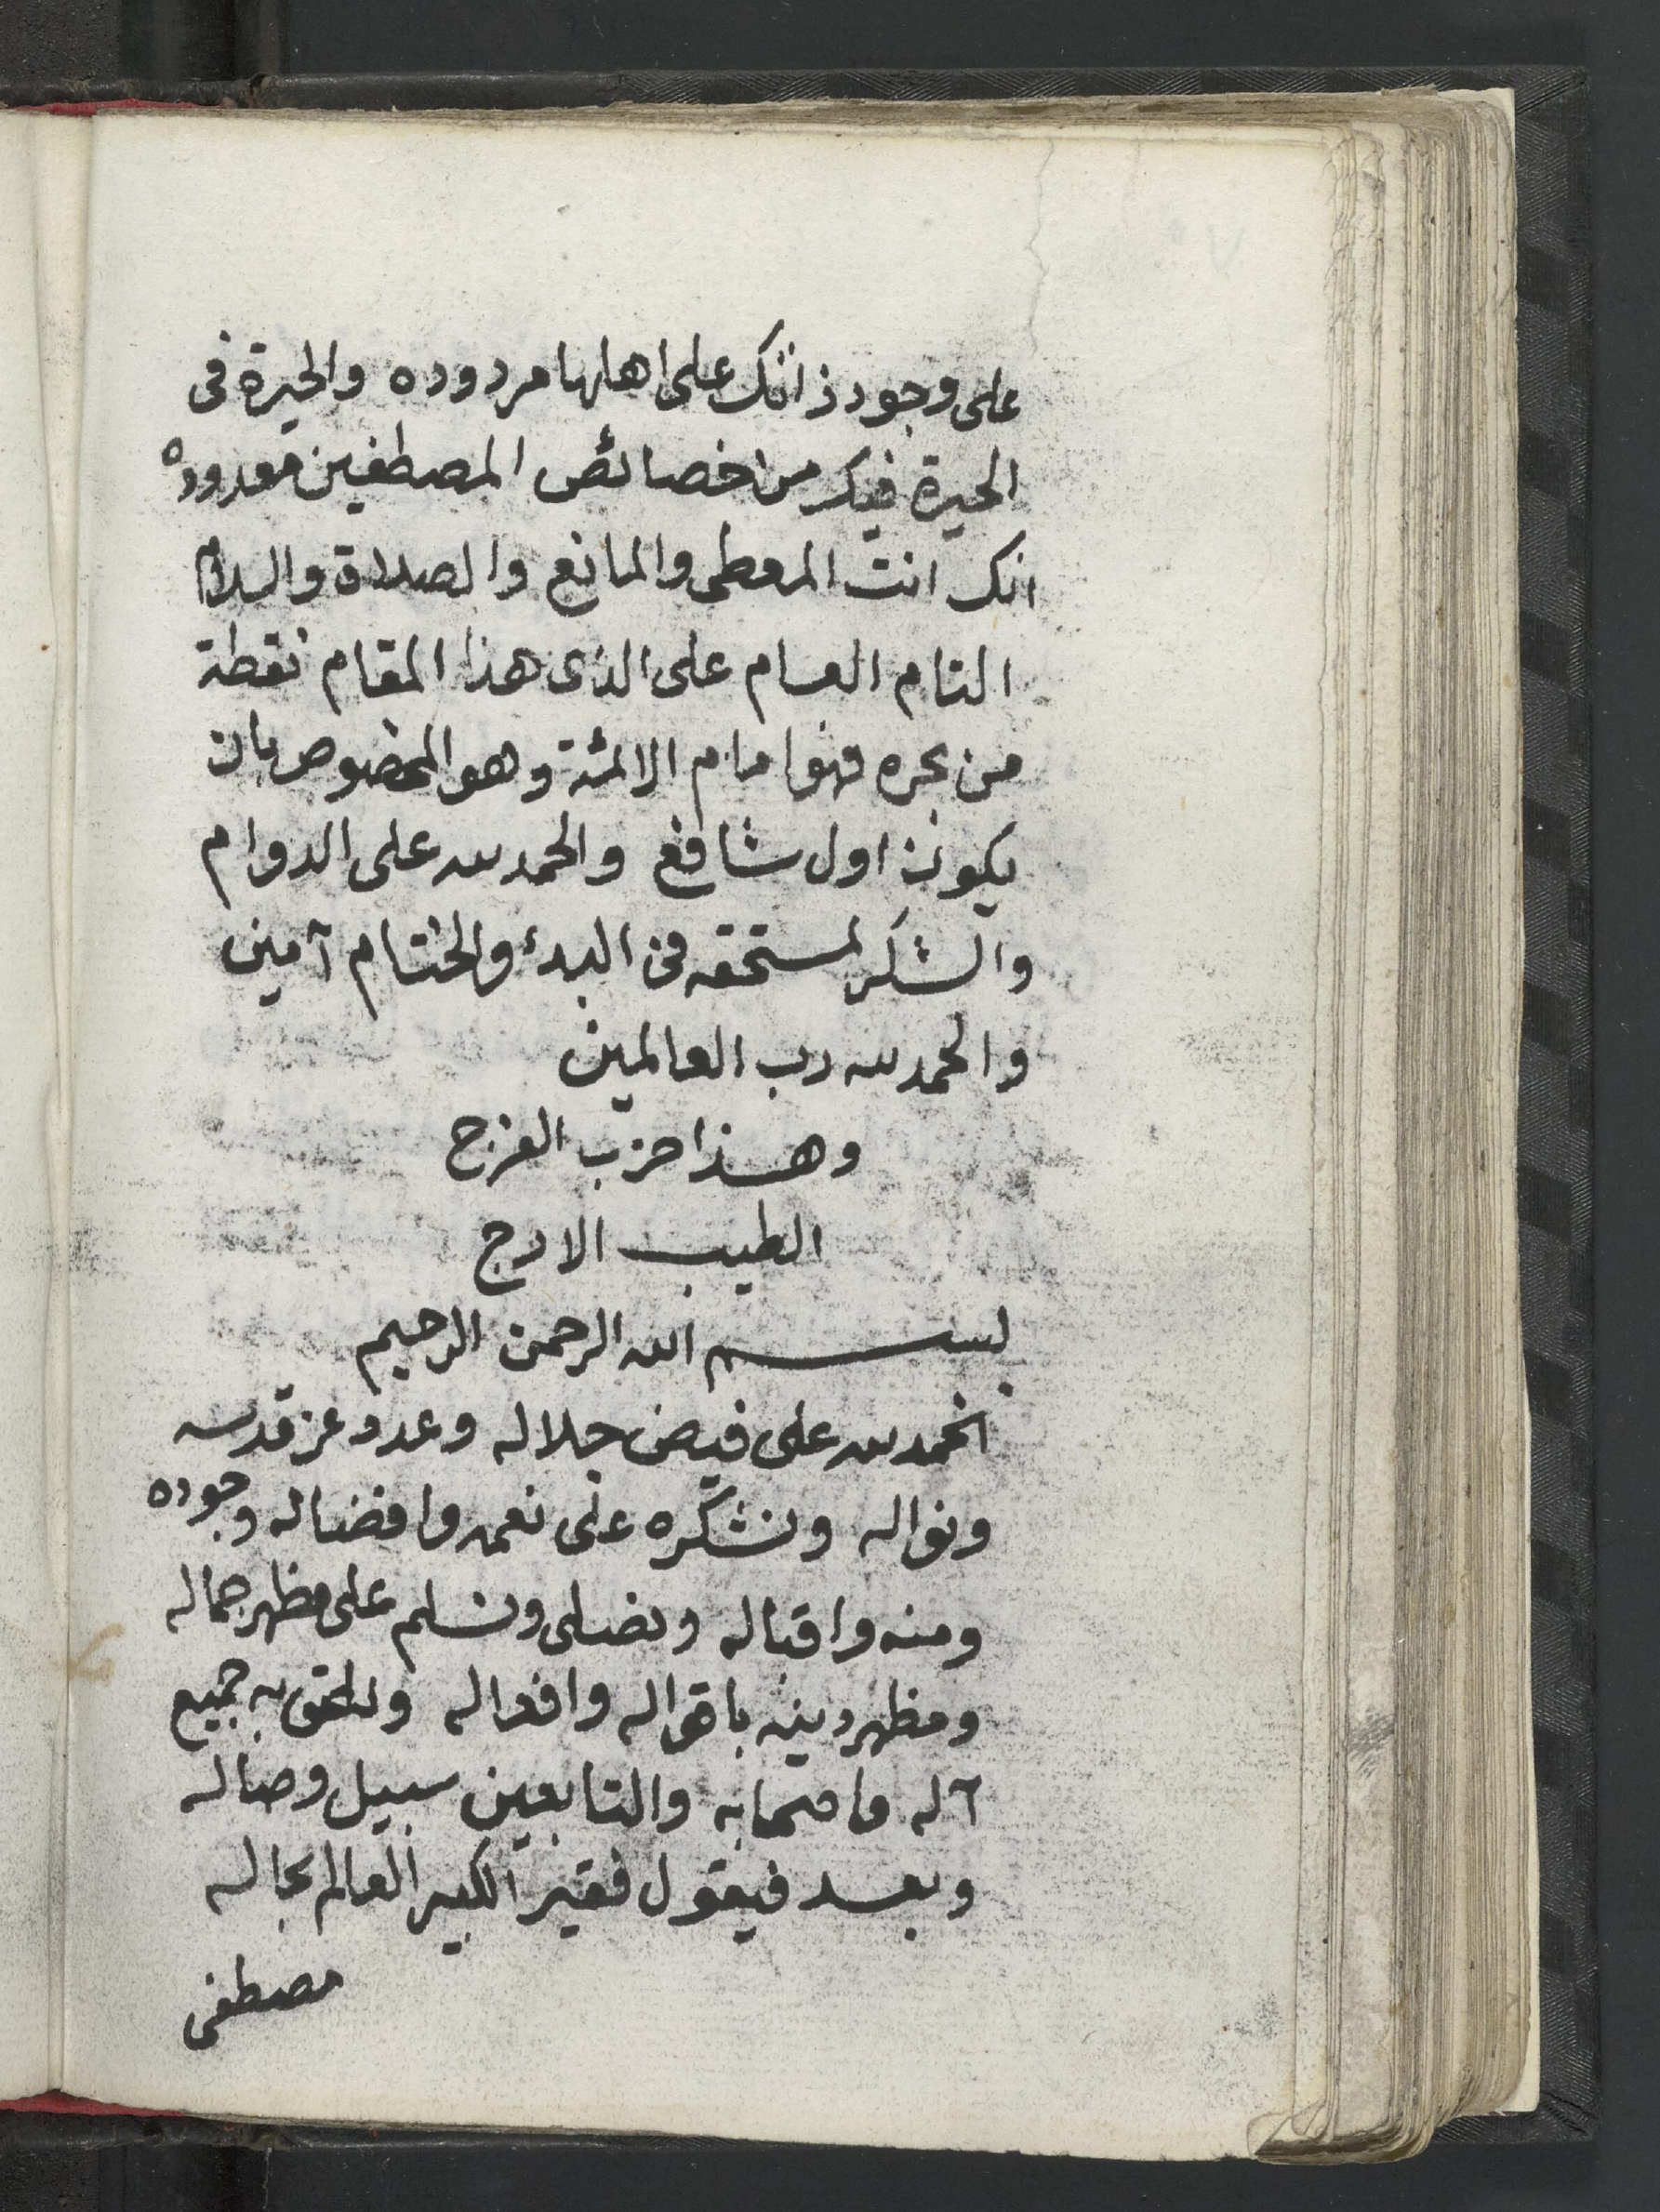 على وجود ذاتك على اهلها مردوده والحيرة فى
الحيرة فيك من خصائص المصطفين معدوده
انك انت المعطى والمانع والصلاة والسلام
التام العام على الذى هذا المقام نقطة
من بحره فهو امام الائمة وهو المخصوص بان
يكون اول شافع والحمد لله على الدوام
والشكر لمستحقه فى البدء والختام آمين
والحمد لله رب العالمين
وهذا حزب الفرج
الطيب الارج
بسم الله الرحمن الرحيم
الحمد لله على فيض جلاله وعد وعز قدسه
ونواله ونشكره على نعمه وافضاله وجوده
ومنه واقباله ونصلى ونسلم على مظهر جماله
ومظهر دينه باقواله وافعاله ونلحق به جميع
آله واصحابه والتابعين سبيل وصاله
وبعد فيقول فقير الكبير العالم بحاله
مصطفى